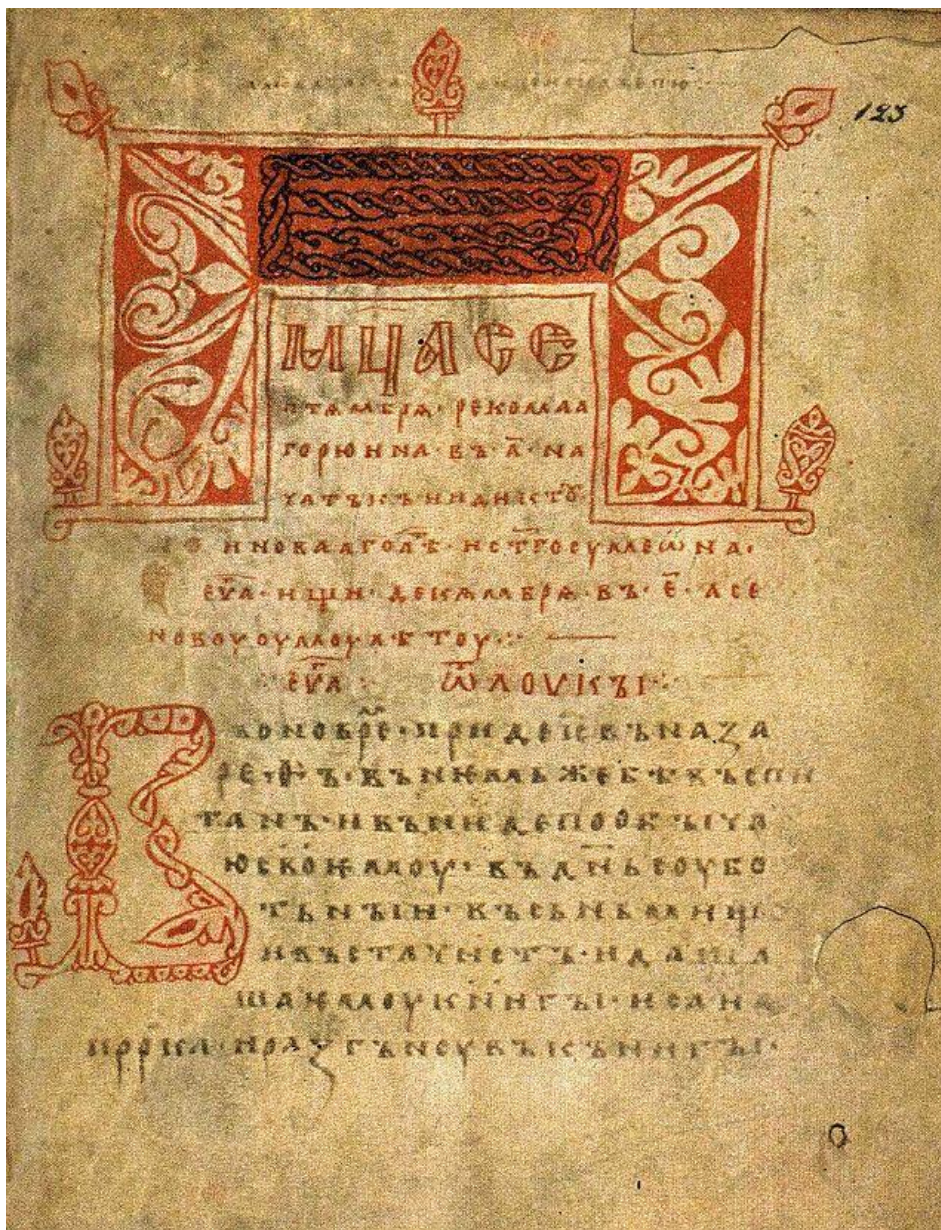 123
МЦА СЕ
ПТѦБРѦ · РЕКОМАА
ГОРЮИНА · ВЪ · А҃ · НА
ЧАТЪКЪ ИНДИКТОУ
ЕУ҃А · ИЩИ · ДЕКѦБРѦ · ВЪ · Е҃ · А СЕ
НОВОУОУМОУ ЛѢТОУ ·:·
ЕУ҃А ·:· Ѿ ЛОУКЫ ·:·
В
ОНО ВРѢ · ПРИДЕ ІС ВЪ НАЗА
РЕ · Ѳ · Ъ · ВЪ НЕМЬЖЕ БѢ ВЪСПИ
ТАНЪ · И ВЪНИДЕ ПО ОБЫЧА
Ю СВОЕМОУ · ВЪ ДН҃Ь СОУБО
ТЬНЫИ · ВЪ СЪНЬМИЩЕ
И ВЪСТА ЧИСТЪ · И ДАША
ЕМОУ КНИГЫ · ИСАИА
ПРР҃КА · И РАЗГЪНОУВЪ КЪНИГЫ ·